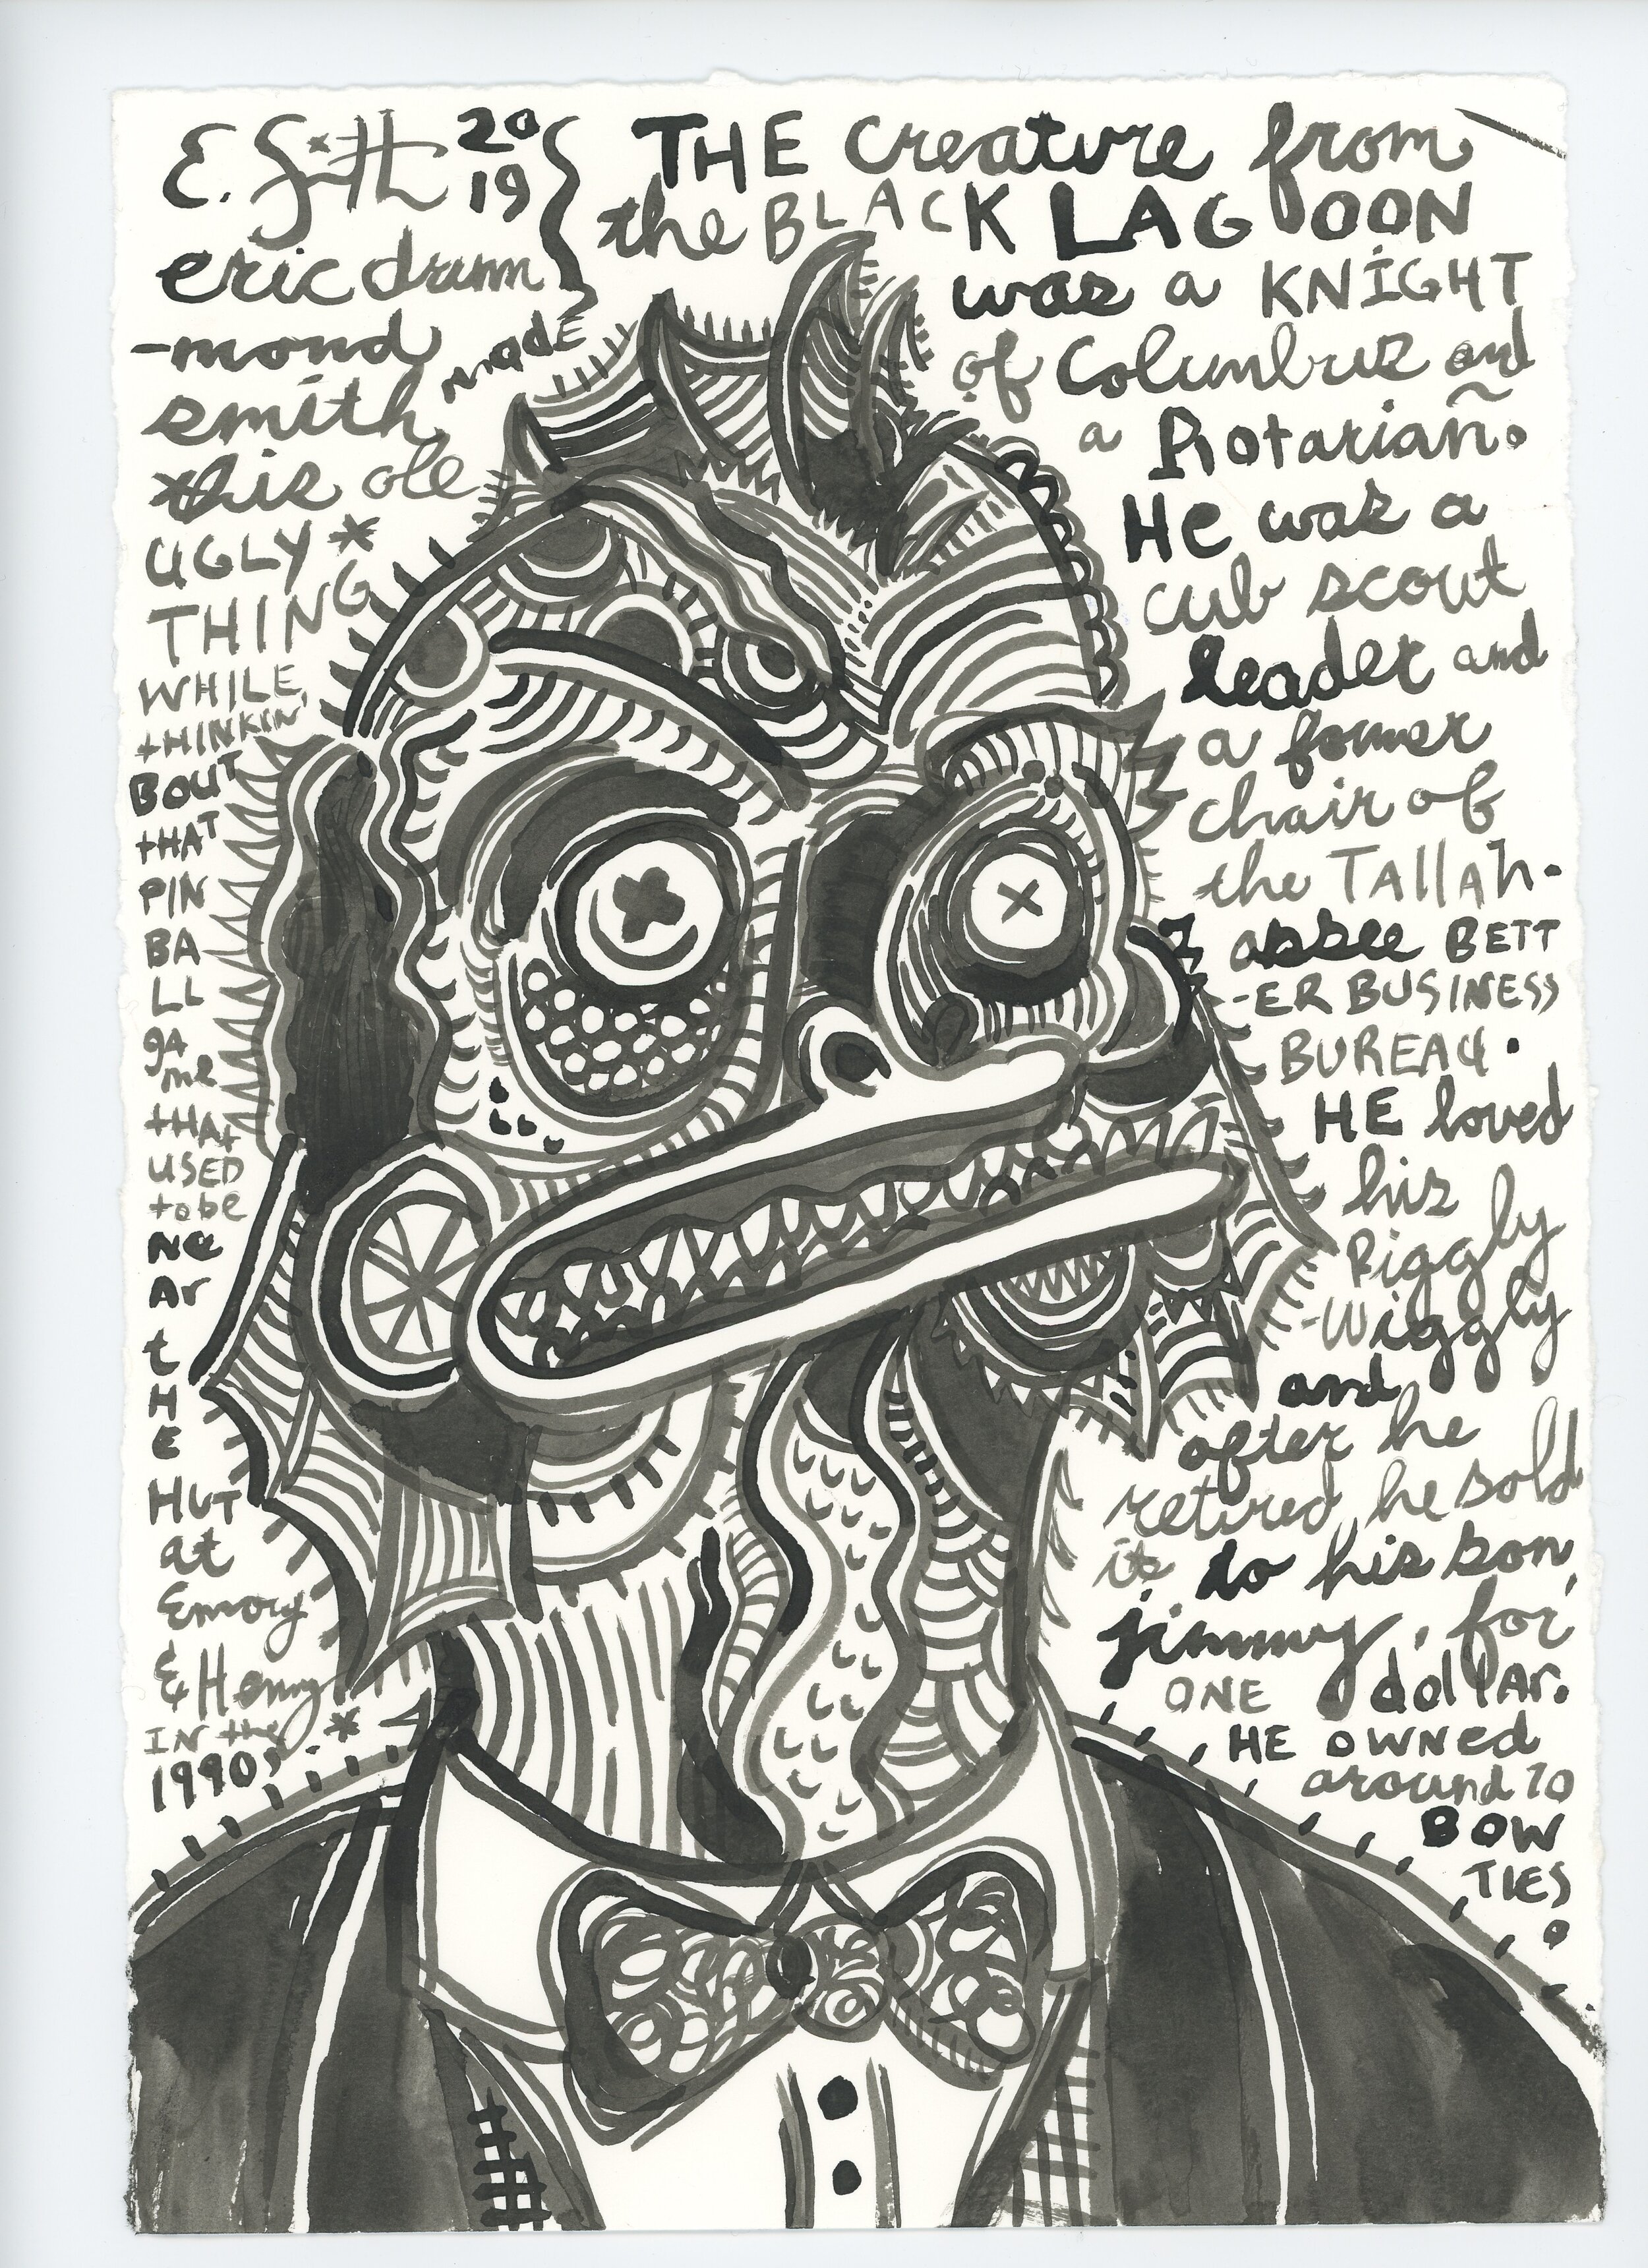 E. Smith 20
19
eric drum
-mond
smith made
this ole
UGLY *
THING
WHILE
tHINKIN'
BOUT
tHAT
PIN
BA
LL
gA
me
tHAt
USED
to be
Ne
Ar
t
H
E
HUT
at
Emory
& Henry
IN the
1990s. *
THE creature from
the BLACK LAGOON
was a KNIGHT
of Columbus and
a Rotariañ.
He was a
cub scout
leader and
a former
chair of
the TAllAh-
assee BETT
-ER BUSINESS
BUREAU.
HE loved
his
Piggly
-Wiggly
and
after he
retired he sold
it to his son,
jimmy, for
ONE dollAr.
HE OWNed
around 70
BOW
TIES
.